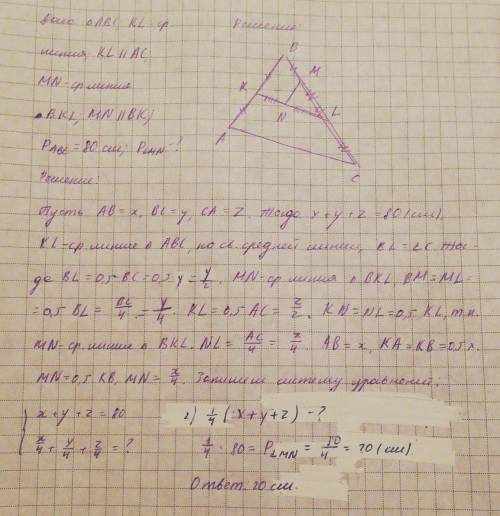 Дано △ABC, KL-ср. Решение:
линия, KL ∥ AC;
MN-ср. линия
△BKL, MN ∥ BK;
P_ABC = 80 см; P_LMN - ?
Решение:
B
M
K
L
N
A
C
Пусть AB = x, BC = y, CA = z. Тогда x + y + z = 80 (см).
KL-ср. линия △ ABC, по св. средней линии, BL = LC. Тог-
да BL = 0,5 BC = 0,5 y = y/2. MN-ср. линия △ BKL, BM = ML =
= 0,5 BL = BC/4 = y/4. KL = 0,5 AC = z/2. KN = NL = 0,5 KL, т.к.
MN-ср. линия △ BKL. NL = AC/4 = z/4. AB = x, KA = KB = 0,5 x.
MN = 0,5 KB, MN = x/4. Запишем систему уравнений:
{ x + y + z = 80 2) 1/4 (x + y + z) - ?
x/4 + y/4 + z/4 = ? 1/4 · 80 = P_LMN = 80/4 = 20 (см).
Ответ. 20 см.